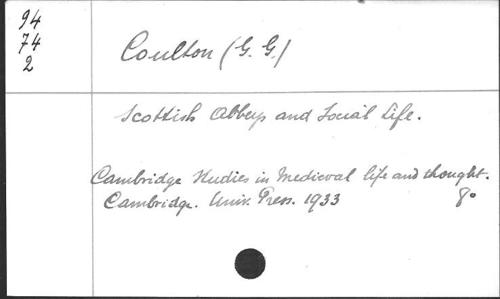 94
74
2
Coulton (G. G.)
Scottish Abbeys and Social Life.
Cambridge Studies in Medieval life and thought.
Cambridge. Univ. Press. 1933 8o